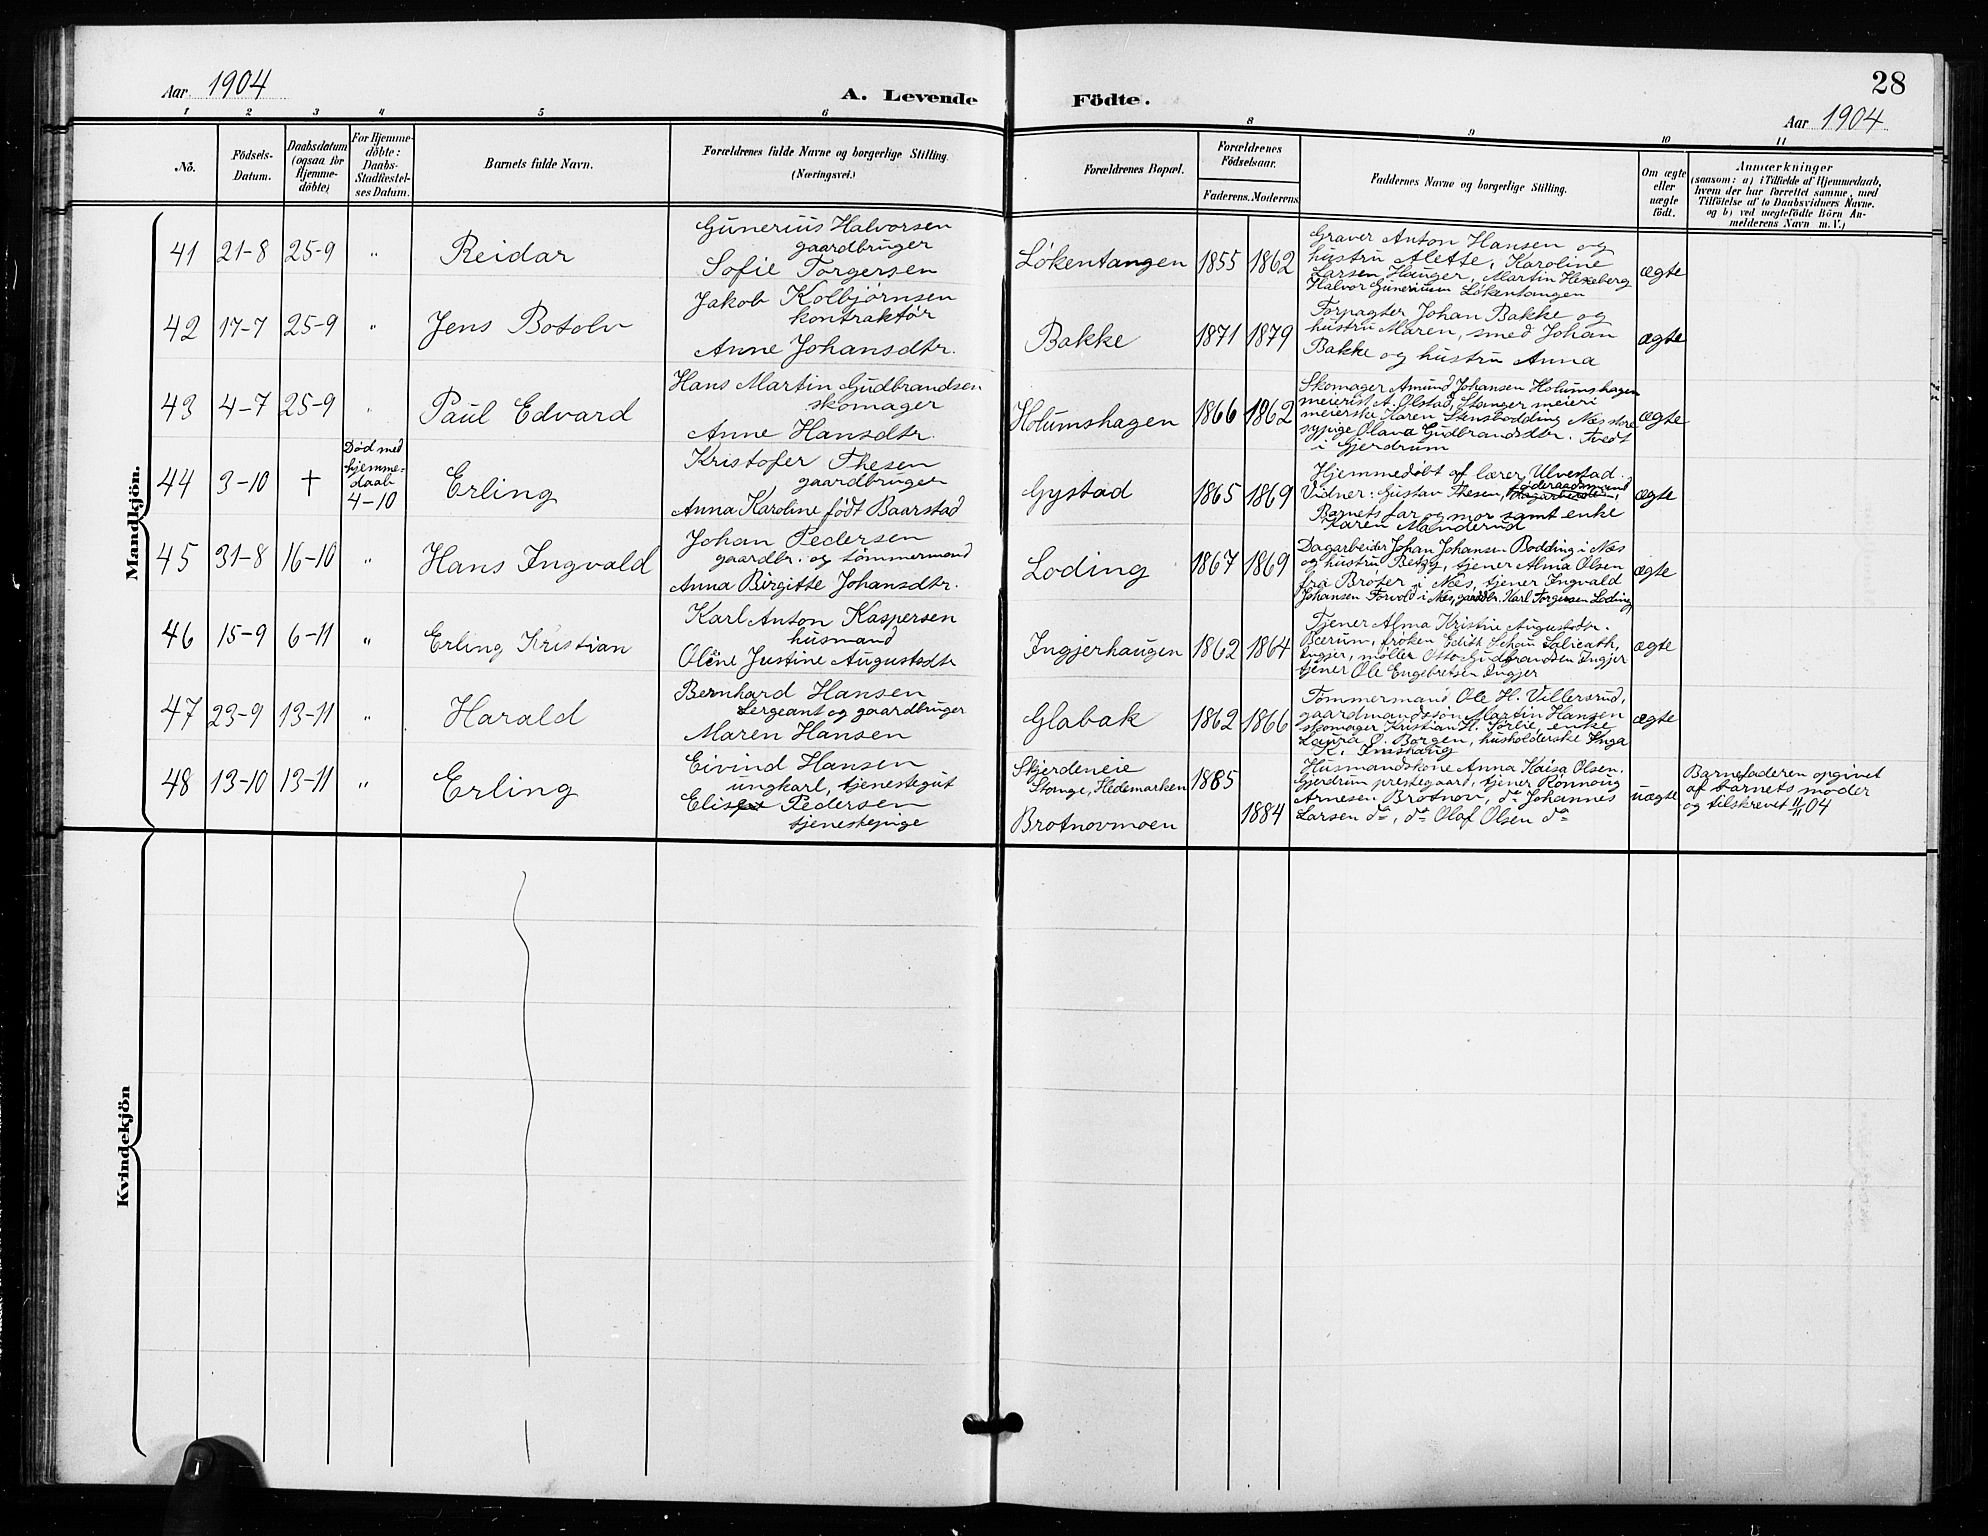 Aar 1904
A. Levende
Födte.
28
Aar 1904
1 2 3 4 5 6
8 9 10 11
No.
Födsels-
Datum.
Daabsdatum
(ogsaa for
Hjemme-
döbte)
For Hjemme-
döbte:
Daabs-
Stadfæstel-
ses Datum.
Barnets fulde Navn.
Forældrenes fulde Navne og borgerlige Stilling.
(Næringsvei.)
Forældrenes Bopæl.
Forældrenes
Födselsaar.
Faderens. Moderens.
Faddernes Navne og borgerlige Stilling.
Om ægte
eller
uægte
født.
Anmærkninger
(saasom: a) i Tilfælde af Hjemmedaab,
hvem der har forrettet samme, med
Tilföielse af to Daabsvidners Navne.
og b) ved uægtefödte Börn An-
melderens Navn m. V.)
Mandkjön.
41 21-8 25-9 " Reidar
Gunerius Halvorsen
gaardbruger
Sofie Torgersen
Løkentangen 1855 1862
Graver Anton Hansen og
hustru Alette, Karoline
Larsen Hauger, Martin Hexeberg
Halvor Guneriusen Løkentangen
ægte
42 17-7 25-9 " Jens Botolv
Jakob Kolbjørnsen
kontraktør
Anne Johansdtr.
Bakke 1871 1879
Forpagter Johan Bakke og
hustru Maren, smed Johan
Bakke og hustru Anna
ægte
43 4-7 25-9 " Paul Edvard
Hans Martin Gudbrandsen
skomager
Anne Hansdtr.
Holumshagen 1866 1862
Skomager Amund Johansen Holumshagen
meierist A. Olstad, Stanger meieri
meierske Karen Stensbodding Næs store
sypige Olava Gudbrandsdtr. Tvedt
i Gjerdrum
ægte
44 3-10 +
Død med
hjemme-
daab
4-10
Erling
Kristofer Thesen
gaardbruger
Anna Karoline født Baarstad
Gystad 1865 1869
Hjemmedøbt af lærer Ulvestad.
Vidner: Gustav Thesen, føderaadsmand
Barnets far og mor samt enke
Karen Manderud
ægte
45 31-8 16-10 " Hans Ingvald
Johan Pedersen
gaardbr. og tømmermand
Anna Birgitte Johansdtr.
Loding 1867 1869
Dagarbeider Johan Johansen Bodding i Næs
og hustru Betzy, tjener Alma Olsen
fra Brøfer i Næs, tjener Ingvald
Johansen Forvold i Næs, gaardbr. Karl Torgersen Loding
ægte
46 15-9 6-11 " Erling Kristian
Karl Anton Kaspersen
husmand
Oline Justine Augustsdtr
Ingjerhaugen 1862 1864
Tjener Alma Kristine Augustsdtr.
Bærum, frøken Edith Schau Salicath,
Ingjer, møller Otto Gudbrandsen Ingjer
tjener Ole Engebretsen Ingjer
ægte
47 23-9 13-11 " Harald
Bernhard Hansen
Sergeant og gaardbruger
Maren Hansen
Glabak 1862 1866
Tømmermand Ole H. Villersrud,
gaardmandssøn Martin Hansen
skomager Kristian H. Sørlie, enke
Laura O. Borgen, husholderske Inga
K. Imshaug
ægte
48 13-10 13-11 " Erling
Eivind Hansen
ungkarl, tjenestegut
Elise Pedersen
tjenestepige
Skjerdeneie
Stange, Hedemarken 1885
Brotnovmoen 1884
Husmandskone Anna Kaisa Olsen.
Gjerdrum prestegaard, tjener Rønnaug
Arnesen Brotnov, do Johannes
Larsen do, do Olaf Olsen do
uægte
Barnefaderen opgivet
af barnets moder
og tilskrevet 11/11 04
Kvindekjön